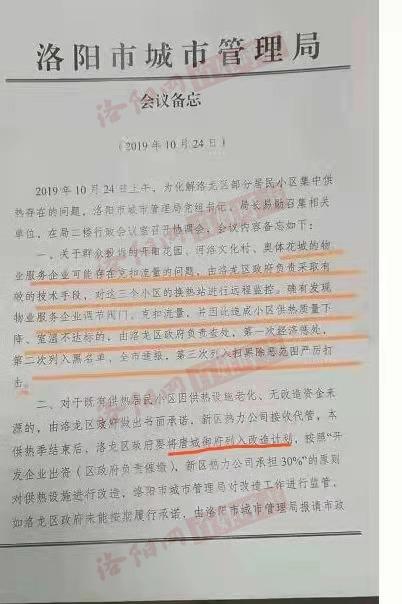 洛阳市城市管理局
会议备忘
（2019年10月24日）
2019年10月24日上午，为化解洛龙区部分居民小区集中供
热存在的问题，洛阳市城市管理局党组书记、局长易勋召集相关
单位，在局二楼行政会议室召开协调会，会议内容备忘如下：
一、关于群众投诉的开阳花园、河洛文化村、奥体花城的物
业服务企业可能存在克扣流量的问题，由洛龙区政府负责采取有
效的技术手段，对这三个小区的换热站进行远程监控。确有发现
物业服务企业调节阀门、克扣流量，并因此造成小区供热质量下
降、室温不达标的，由洛龙区政府负责查处，第一次经济惩处，
第二次列入黑名单、全市通报，第三次列入扫黑除恶范围严厉打
击。
二、对于既有供热居民小区因供热设施老化、无改造资金来
源的，由洛龙区政府做出书面承诺，新区热力公司接收代管，本
供热季结束后，洛龙区政府要将唐城御府列入改造计划，按照“开
发企业出资（区政府负责保缴），新区热力公司承担30%”的原则
对供热设施进行改造，洛阳市城市管理局对改造工作进行监管，
如洛龙区政府未能按期履行承诺，由洛阳市城市管理局报请市政
洛阳网
洛阳网
洛阳网